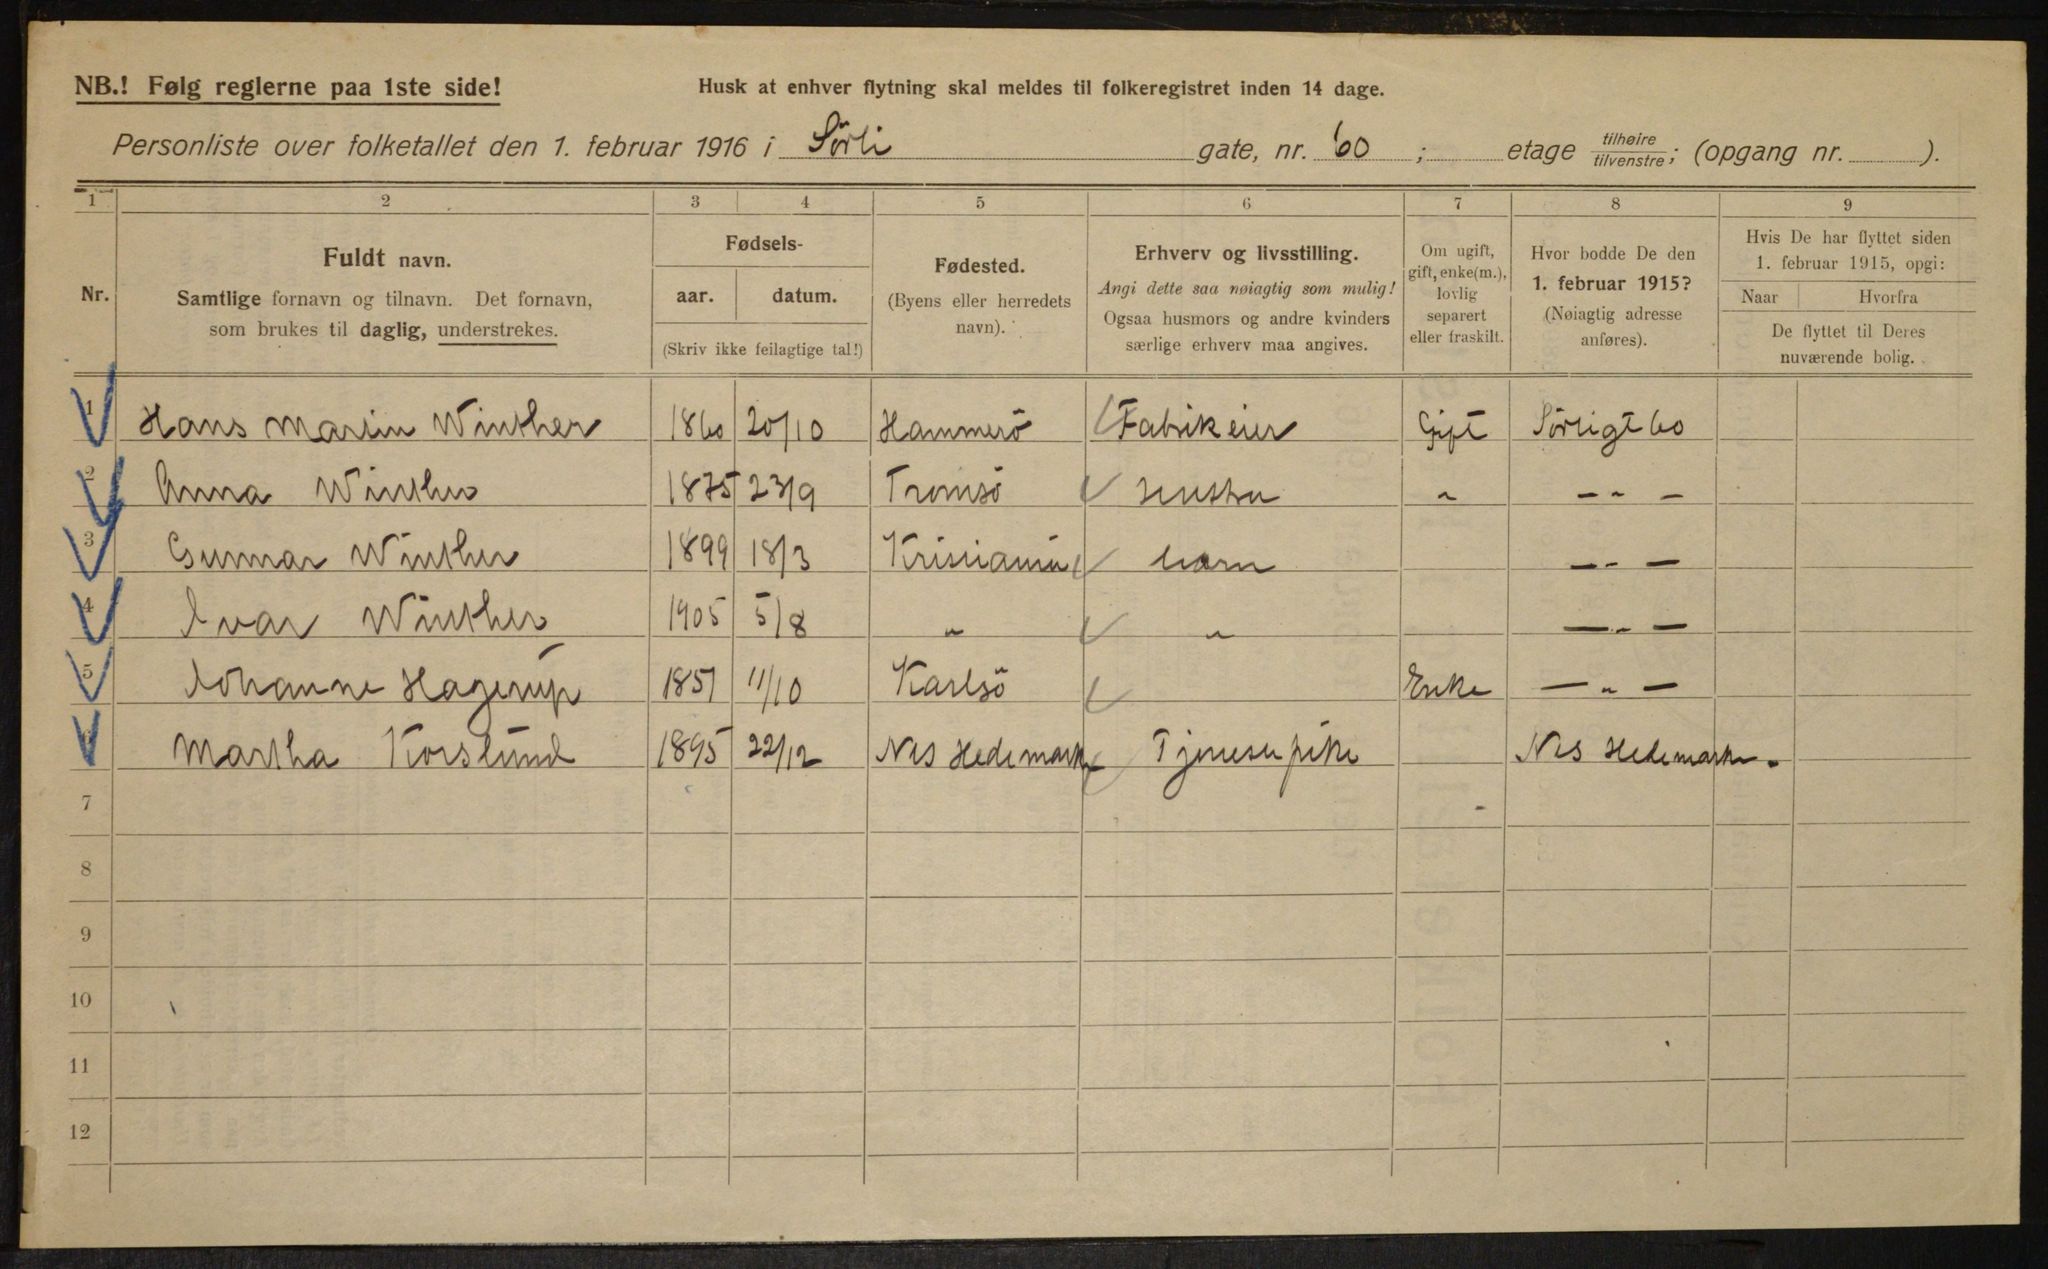 NB.! Følg reglerne paa 1ste side!
Husk at enhver flytning skal meldes til folkeregistret inden 14 dage.
Personliste over folketallet den 1. februar 1916 i Sörli gate, nr. 60 ; etage tilhøire tilvenstre; (opgang nr. ).
1 2 3 4 5 6 7 8 9
Nr.
Fuldt navn.
Samtlige fornavn og tilnavn. Det fornavn,
som brukes til daglig, understrekes.
Fødsels-
aar. datum.
(Skriv ikke feilagtige tal!)
Fødested.
(Byens eller herredets
navn).
Erhverv og livsstilling.
Angi dette saa nøiagtig som mulig!
Ogsaa husmors og andre kvinders
særlige erhverv maa angives.
Om ugift,
gift, enke(m.),
lovlig
separert
eller fraskilt.
Hvor bodde De den
1. februar 1915?
(Nøiagtig adresse
anføres).
Hvis De har flyttet siden
1. februar 1915, opgi:
Naar Hvorfra
De flyttet til Deres
nuværende bolig.
1 Hans Martin Winther 1860 20/10 Hammerö Fabrikeier Gift Sörligt 60
2 Anna Winther 1875 23/9 Tromsö Hustru " — " —
3 Gunnar Winther 1899 18/3 Kristiania barn — " —
4 Ivar Winther 1905 5/8 " " — " —
5 Johanne Hagerup 1851 11/10 Karlsö Enke — " —
6 Martha Korslund 1895 22/12 Nes Hedemarken Tjenestepike Nes Hedemarken.
7
8
9
10
11
12